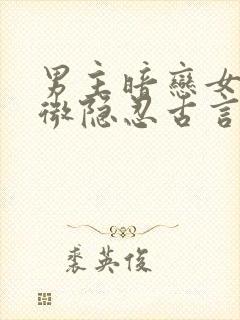 男主暗戀女
微隐忍古言
裘英俊